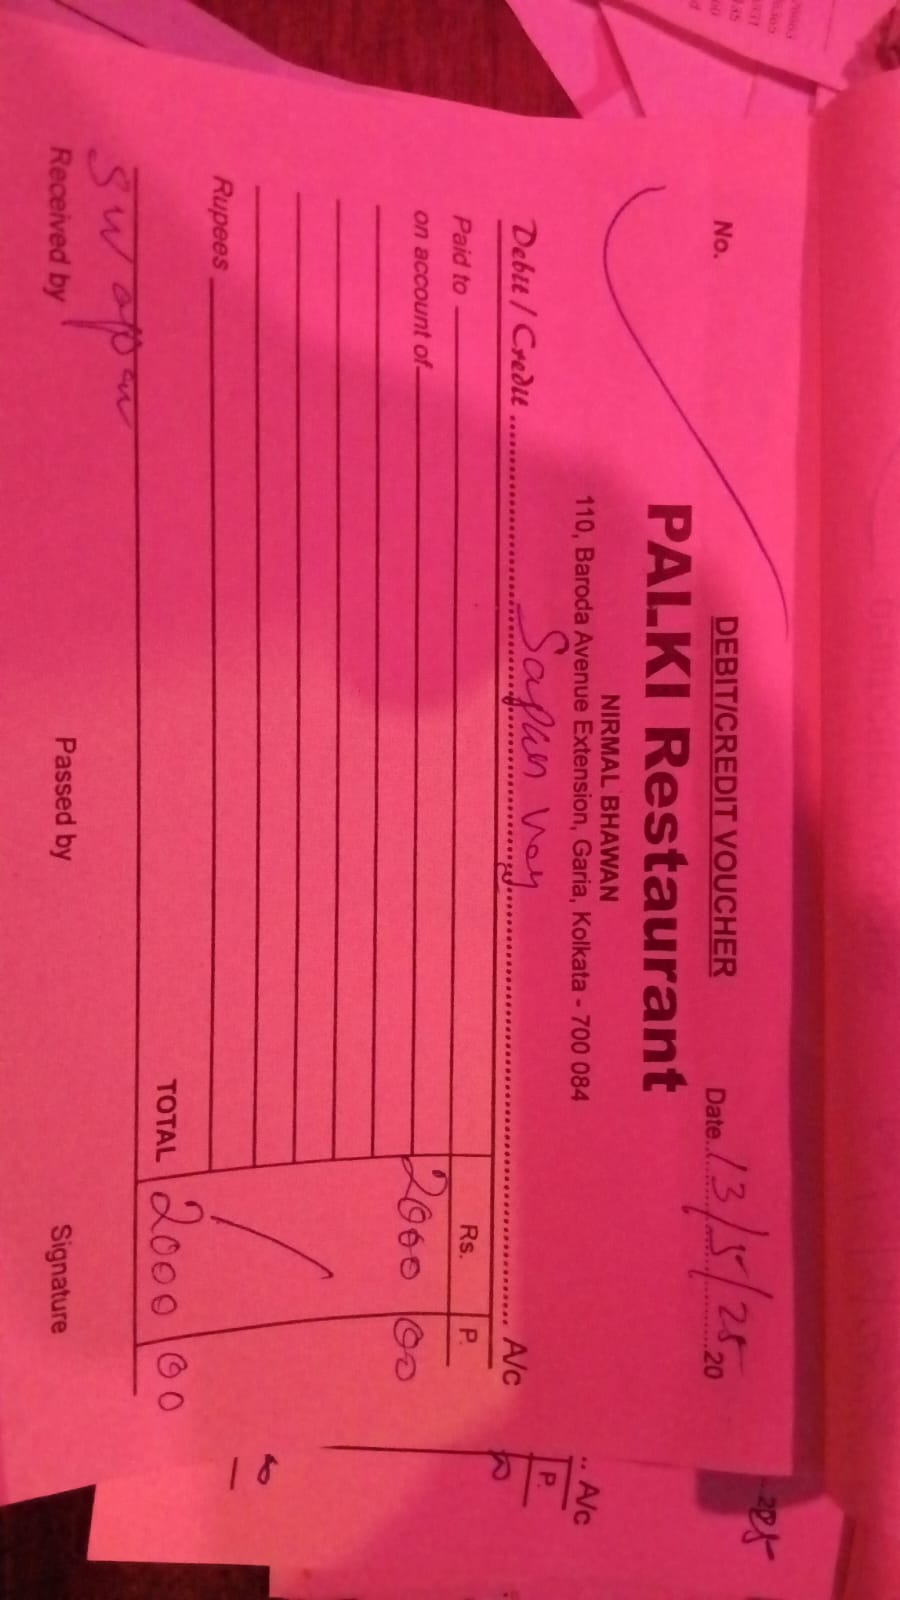 DEBIT/CREDIT VOUCHER
No. Date 13/5/25 20
PALKI Restaurant
NIRMAL BHAWAN
110, Baroda Avenue Extension, Garia, Kolkata - 700 084
Debit / Credit A/c
Paid to Rs. P.
on account of 2000 00
Rupees
TOTAL 2000 00
Received by Passed by Signature
A/c
P.